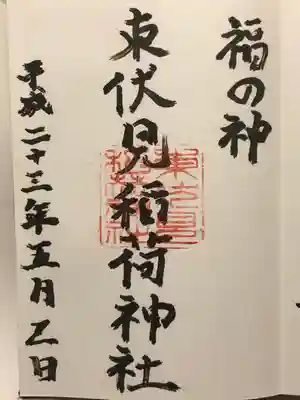 福の神
東伏見稲荷神社
平成二十三年五月乙日